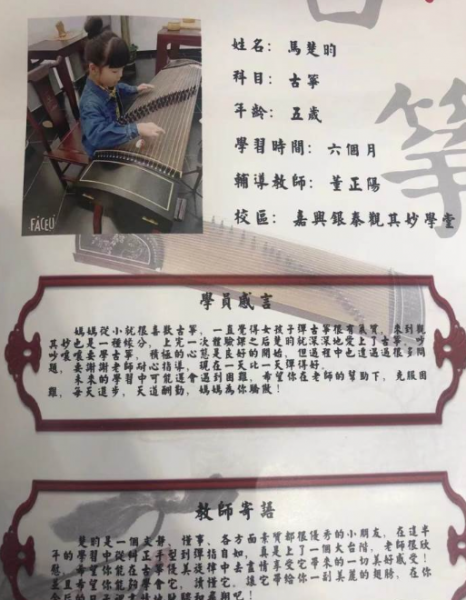 筝
姓名：馬楚昀
科目：古箏
年齡：五歲
學習時間：六個月
輔導教師：董正陽
校區：嘉興銀泰觀其妙學堂
FACEU
學員感言
媽媽從小就很喜歡古箏，一直覺得女孩子彈古箏很有氣質，來到觀
其妙也是一種緣分，上完一次體驗課之后楚昀就深深地愛上了古箏，吵
吵嚷嚷要學古箏，積極的心態是良好的開始，但過程中也遭遇過很多問
題，要謝謝老師耐心指導，現在一天比一天彈得好。
未來的學習中可能還會遇到困難，希望你在老師的幫助下，克服困
難，每天進步，天道酬勤，媽媽為你驕傲！
教師寄語
楚昀是一個文靜、懂事、各方面素質都很優秀的小朋友，在這半
年的學習中從糾正手型到彈指自如，真是上了一個大台階，老師很欣
慰，希望你能在古箏優美旋律中去盡情享受它帶來的一切美好感受！
並且希望你能夠學會它，讀懂它。讓它帶給你一副美麗的翅膀，在你